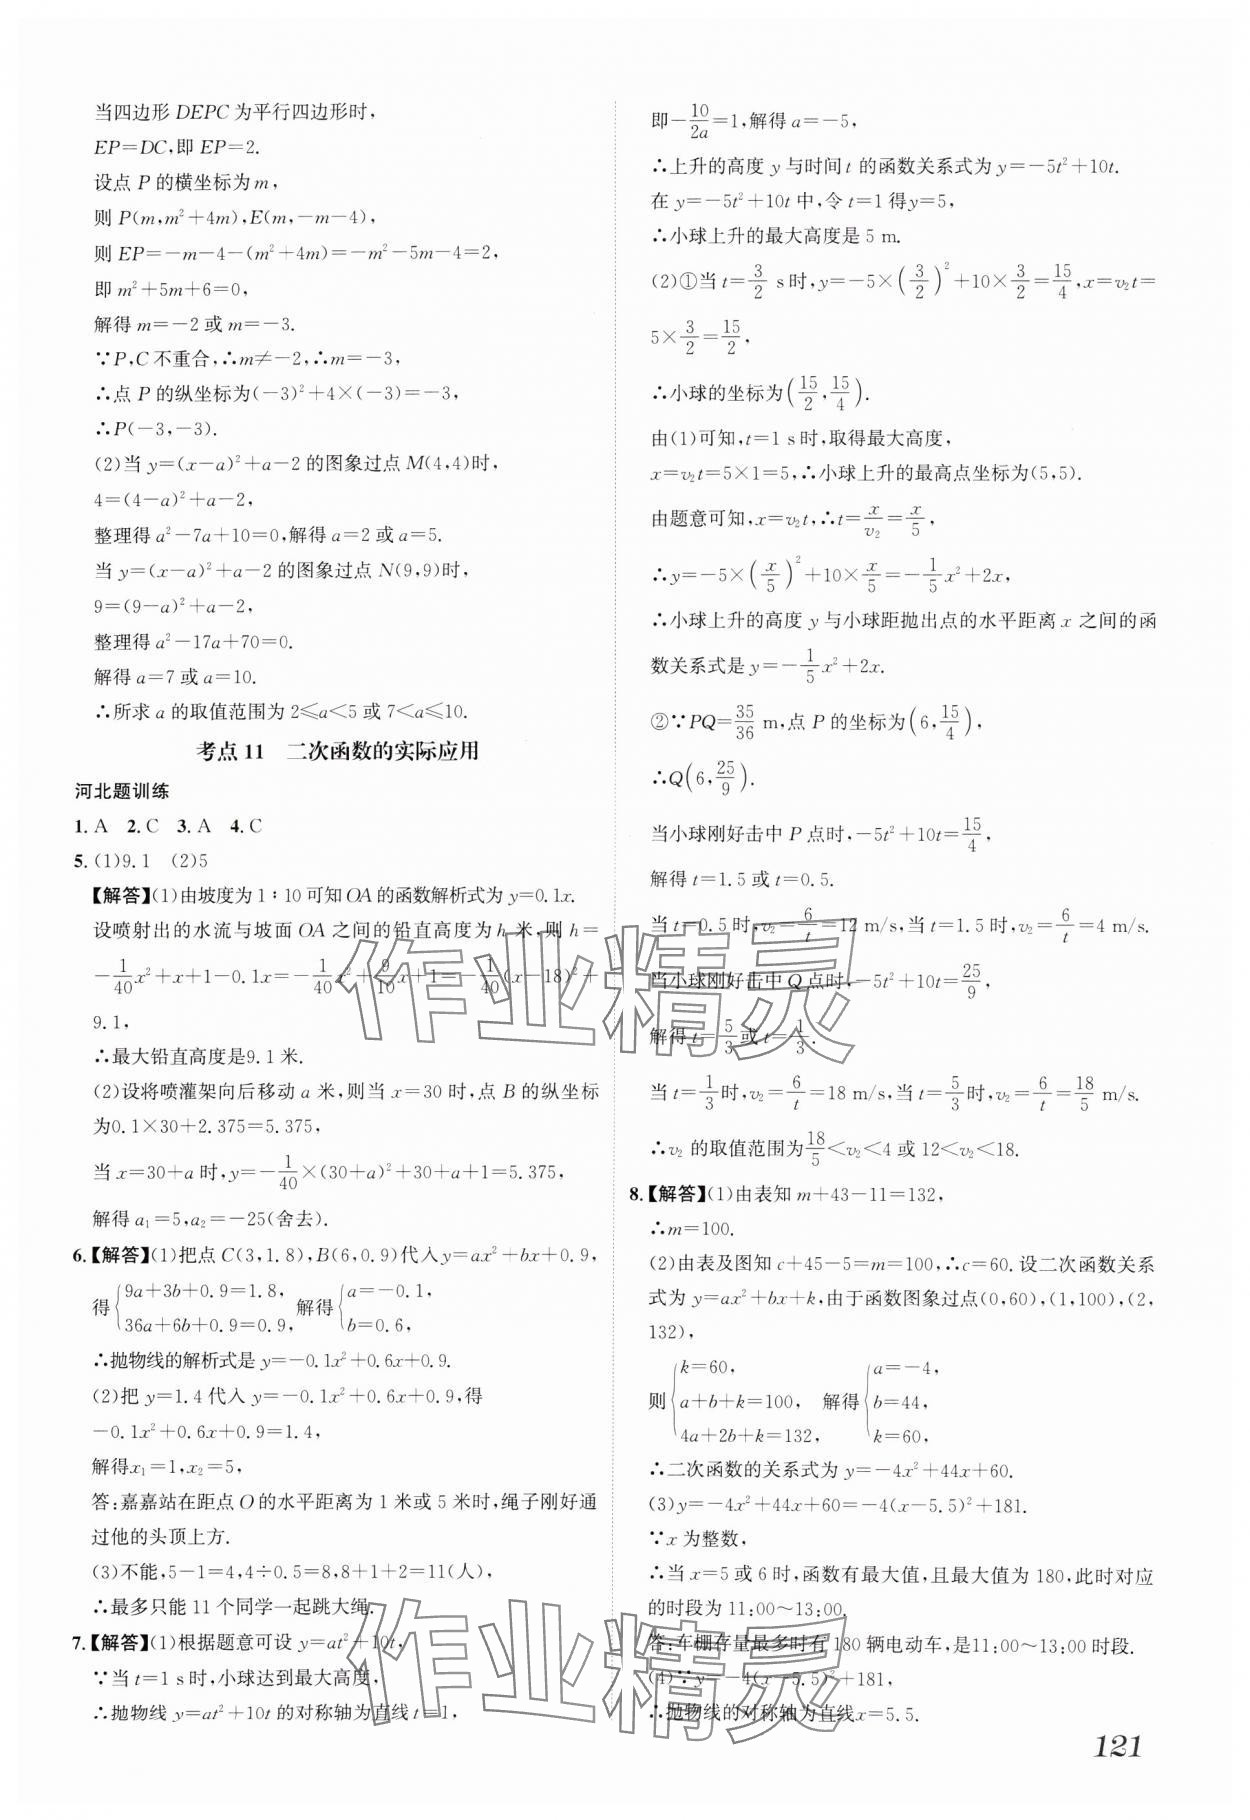 当四边形 DEPC 为平行四边形时，
EP=DC，即 EP=2.
设点 P 的横坐标为 m，
则 P(m，m²+4m)，E(m，-m-4)，
则 EP=-m-4-(m²+4m)=-m²-5m-4=2，
即 m²+5m+6=0，
解得 m=-2 或 m=-3.
∵P，C 不重合，∴m≠-2，∴m=-3，
∴点 P 的纵坐标为(-3)²+4×(-3)=-3，
∴P(-3，-3).
(2)当 y=(x-a)²+a-2 的图象过点 M(4，4)时，
4=(4-a)²+a-2，
整理得 a²-7a+10=0，解得 a=2 或 a=5.
当 y=(x-a)²+a-2 的图象过点 N(9，9)时，
9=(9-a)²+a-2，
整理得 a²-17a+70=0.
解得 a=7 或 a=10.
∴所求 a 的取值范围为 2⩽a<5 或 7<a⩽10.
考点 11 二次函数的实际应用
河北题训练
1. A 2. C 3. A 4. C
5. (1)9.1 (2)5
【解答】(1)由坡度为 1∶10 可知 OA 的函数解析式为 y=0.1x.
设喷射出的水流与坡面 OA 之间的铅直高度为 h 米，则 h=
-1/40x²+x+1-0.1x=-1/40x²+9/10x+1=-1/40(x-18)²+
9.1，
∴最大铅直高度是9.1 米.
(2)设将喷灌架向后移动 a 米，则当 x=30 时，点 B 的纵坐标
为0.1×30+2.375=5.375，
当 x=30+a 时，y=-1/40×(30+a)²+30+a+1=5.375，
解得 a₁=5，a₂=-25(舍去).
6.【解答】(1)把点 C(3，1.8)，B(6，0.9)代入 y=ax²+bx+0.9，
得{9a+3b+0.9=1.8， 36a+6b+0.9=0.9， 解得{a=-0.1， b=0.6，
∴抛物线的解析式是 y=-0.1x²+0.6x+0.9.
(2)把 y=1.4 代入 y=-0.1x²+0.6x+0.9，得
-0.1x²+0.6x+0.9=1.4，
解得x₁=1，x₂=5，
答：嘉嘉站在距点 O 的水平距离为 1 米或 5 米时，绳子刚好通
过他的头顶上方.
(3)不能，5-1=4，4÷0.5=8，8+1+2=11(人)，
∴最多只能 11 个同学一起跳大绳.
7.【解答】(1)根据题意可设 y=at²+10t，
∵当 t=1 s 时，小球达到最大高度，
∴抛物线 y=at²+10t 的对称轴为直线 t=1，
即-10/2a=1，解得 a=-5，
∴上升的高度 y 与时间 t 的函数关系式为 y=-5t²+10t.
在 y=-5t²+10t 中，令 t=1 得y=5，
∴小球上升的最大高度是 5 m.
(2)①当 t=3/2 s时，y=-5×(3/2)²+10×3/2=15/4，x=v₂t=
5×3/2=15/2，
∴小球的坐标为(15/2，15/4).
由(1)可知，t=1 s 时，取得最大高度，
x=v₂t=5×1=5，∴小球上升的最高点坐标为(5，5).
由题意可知，x=v₂t，∴t=x/v₂=x/5，
∴y=-5×(x/5)²+10×x/5=-1/5x²+2x，
∴小球上升的高度 y 与小球距抛出点的水平距离 x 之间的函
数关系式是 y=-1/5x²+2x.
②∵PQ=35/36 m，点 P 的坐标为(6，15/4)，
∴Q(6，25/9).
当小球刚好击中 P 点时，-5t²+10t=15/4，
解得 t=1.5 或 t=0.5.
当 t=0.5 时，v₂=6/t=12 m/s，当 t=1.5 时，v₂=6/t=4 m/s.
当小球刚好击中 Q 点时，-5t²+10t=25/9，
解得 t=5/3或 t=1/3.
当 t=1/3时，v₂=6/t=18 m/s，当 t=5/3时，v₂=6/t=18/5 m/s.
∴v₂ 的取值范围为18/5<v₂<4 或 12<v₂<18.
8.【解答】(1)由表知 m+43-11=132，
∴m=100.
(2)由表及图知 c+45-5=m=100，∴c=60. 设二次函数关系
式为 y=ax²+bx+k，由于函数图象过点(0，60)，(1，100)，(2，
132)，
则{k=60， a+b+k=100， 4a+2b+k=132， 解得{a=-4， b=44， k=60，
∴二次函数的关系式为 y=-4x²+44x+60.
(3)y=-4x²+44x+60=-4(x-5.5)²+181.
∵x 为整数，
∴当 x=5 或 6 时，函数有最大值，且最大值为 180，此时对应
的时段为 11:00~13:00.
答：车棚存量最多时有 180 辆电动车，是11:00~13:00 时段.
(4)∵y=-4(x-5.5)²+181，
∴抛物线的对称轴为直线x=5.5.
作业精灵
作业精灵
121